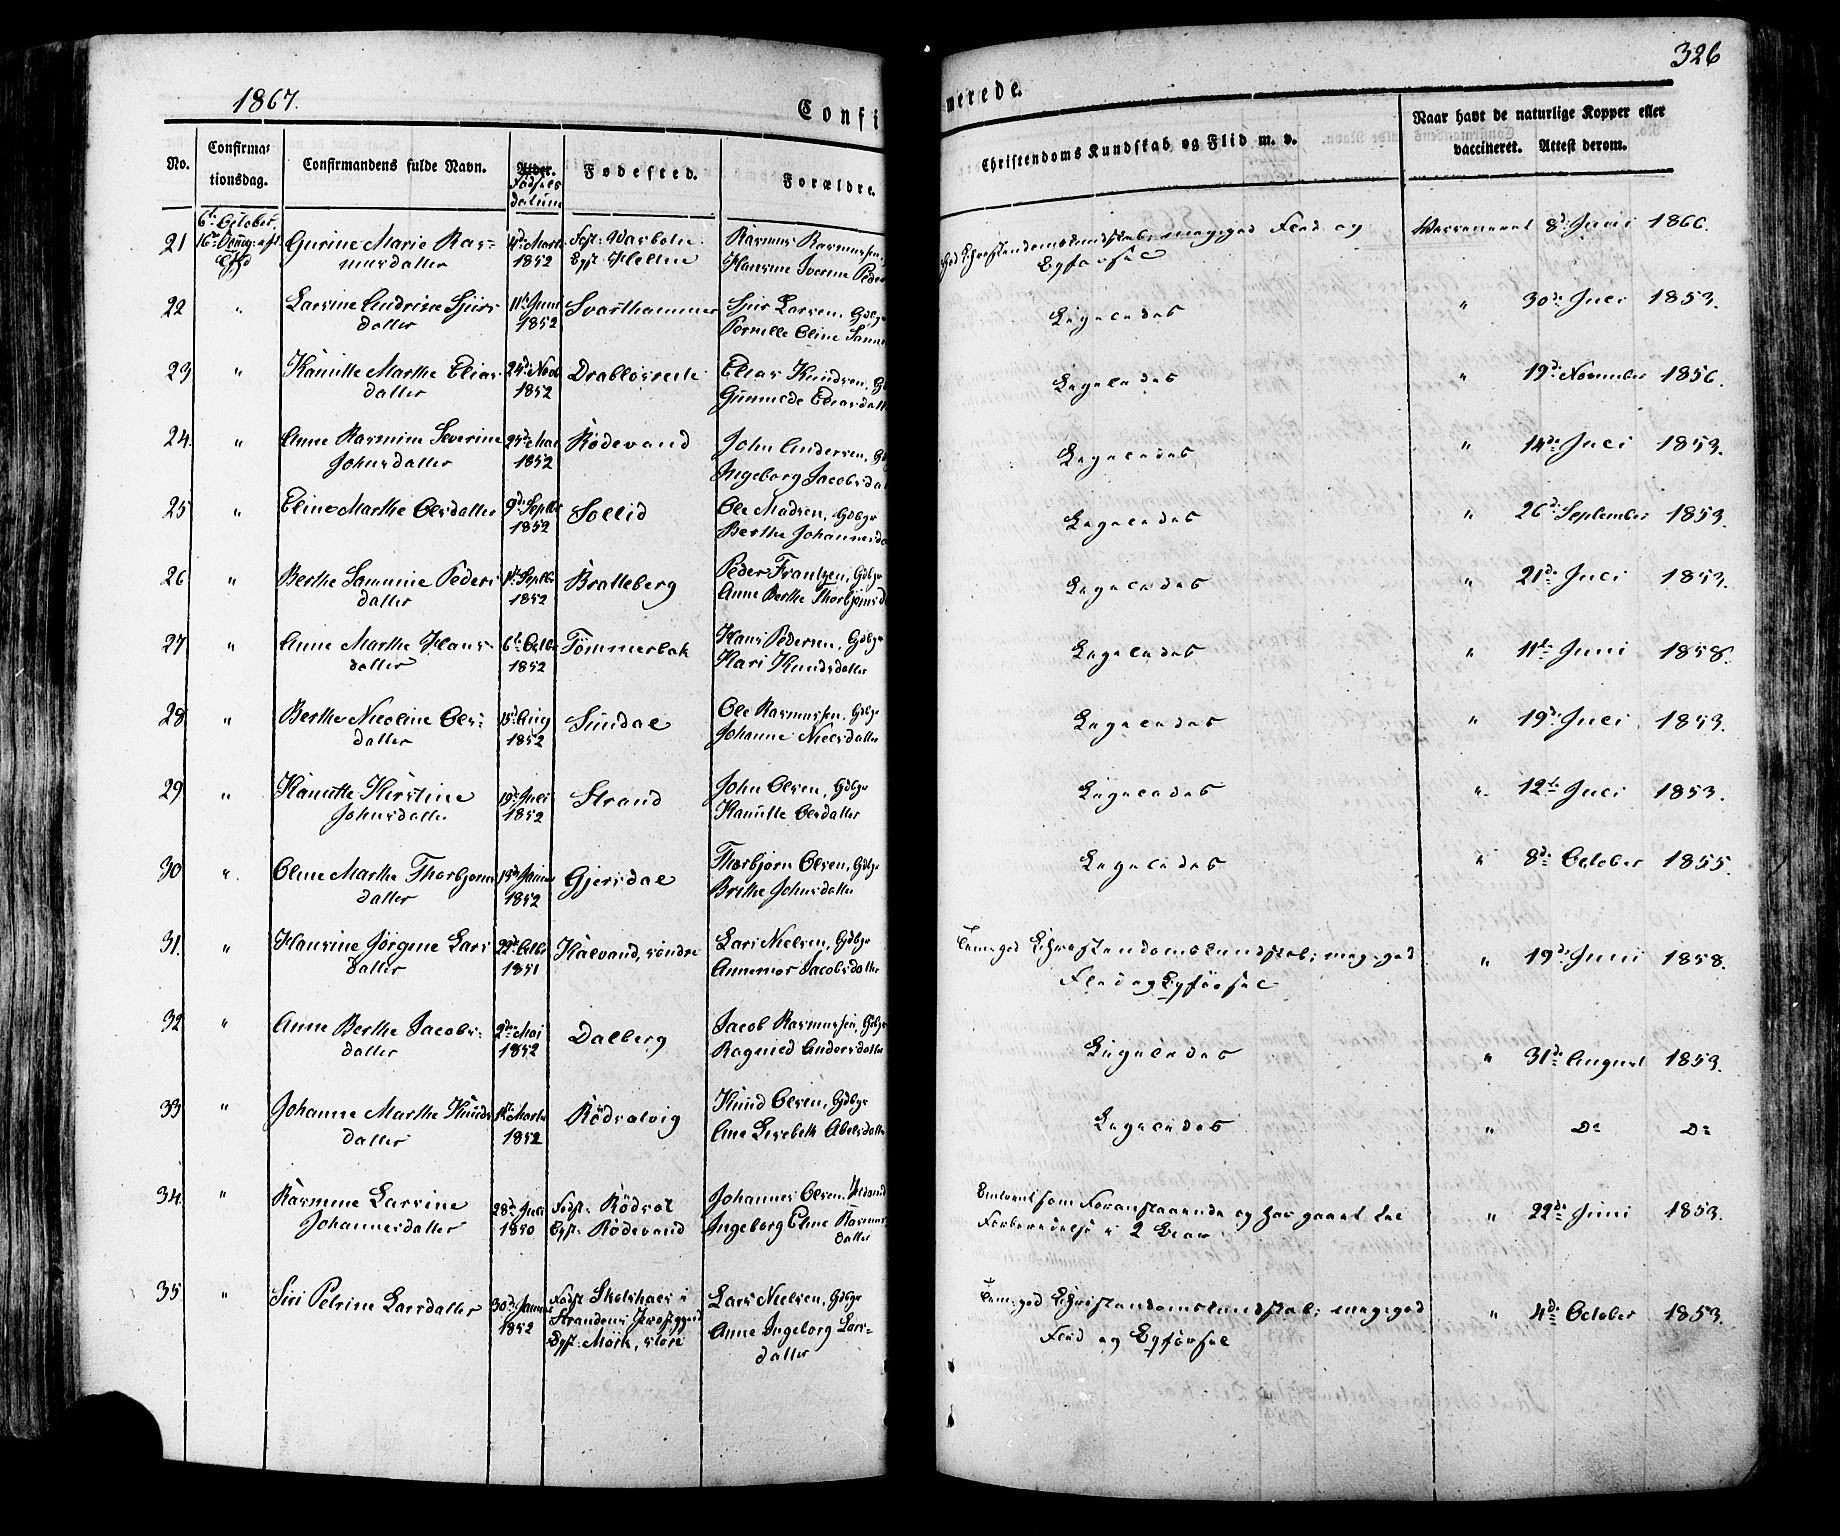 326
1867.
Confi
merede.
No.
Confirma-
tionsdag.
Confirmandens fulde Navn.
Alder.
Fødsels
datum
Fødested.
Forældre.
Christendoms Kundskab og Flid m. v.
Naar havt de naturlige Kopper eller
vaccineret. Attest derom.
21
6te October,
16de
Gurine Marie Ras-
musdatter
4de Marts
1852
Fost:
Bgst:
Rasmus Rasmussen,
Hansine Iverine Peder
god Christendomskundskab; meg: god Flid og
Opførsel
Vaccineret 8de Juni 1866.
22
"
Larsine Andrine Sjurs
datter
11te Juni
1852
Svarthammer
Sjur Larsen, Gdbgr
Pernille Oline
Ligeledes
" 30de Juli 1853.
23
"
Knutte Marthe Elias
datter
24de Novb
1852
Drabløsreite
Elias Knudsen,
Gunnilde Eliasdatt
Ligeledes
" 19de November 1856.
24.
"
Anne Rasmine Severine
Johnsdatter
1852
Rødevand
John Andersen,
Ingeborg Jacobsda
Ligeledes
" 14de Juli 1853.
25
"
Eline Marthe Olsdatter
9de Septbr
1852
Sollid
Ole Madsen, Gdbgr
Berthe Johannesda
Ligeledes
" 26de September 1853.
26
"
Berthe Sammine Peders
datter
1ste Septbr
1852
Bratteberg
Peder Frantzen, Gdbgr
Anne Berthe Thorbjørnsd
Ligeledes
" 21de Juli 1853.
27
"
Anne Marthe Hans
datter
6te Octbr
1852
Tømmerbak
Hans Pedersen, Gdbgr
Kari Knudsdatter
Ligeledes
" 11te Juni 1858.
28
"
Berthe Nicoline Ols-
datter
1852
Sundal
Ole Rasmussen, Gdbgr
Johanne Nielsdatter
Ligeledes
" 19de Juli 1853.
29
"
Knutte Kirstine
Johnsdatter
19de Juli
1852
Strand
John Olsen, Gdbgr
Knutte Olsdatter
Ligeledes
" 12te Juli 1853.
30
"
Oline Marthe Thorbjørns
datter
1852
Gjersdal
Thorbjørn Olsen, Gdbgr
Brithe Johnsdatter
Ligeledes
" 8de October 1855.
31.
"
Hansine Jørgine Lars
datter
22de Octbr
1851
Kalvand, søndre
Lars Nielsen, Gdbgr
Annemor Jacobsdatter
Tem: god Christendomskundskab; meg: god
Flid og Opførsel
" 19de Juni 1858.
32
"
Anne Berthe Jacobs-
datter
2den Mai
1852
Dalberg
Jacob Rasmussen, Gdbgr
Ragnild Andersdatter
Ligeledes
" 31de August 1853.
33
"
Johanne Marthe Knuds
datter
1852
Rødsalvig
Knud Olsen, Gdbgr
Ane Lisebeth Abelsdatter
Ligeledes
" Do Do
34.
"
Rasmine Larsine
Johannesdatter
28de Juli
1850
Fødst: Rødsæt
Bgst: Rødevand
Johannes Olsen,
Ingeborg Eline Rasmus
datter
Omtrent som Foranstaaende og har gaaet til
Forberedelse i 2 Aar
" 22de Juni 1853.
35
"
Siri Petrine Larsdatter
30de Januar
1852
Fødst i
Strandens Præstegjeld
Bgst: Mørk, store
Lars Nielsen, Gdbgr
Anne Ingeborg Lars-
datter
Tem: god Christendomskundskab; meg: god
Flid og Opførsel
" 4de October 1853.